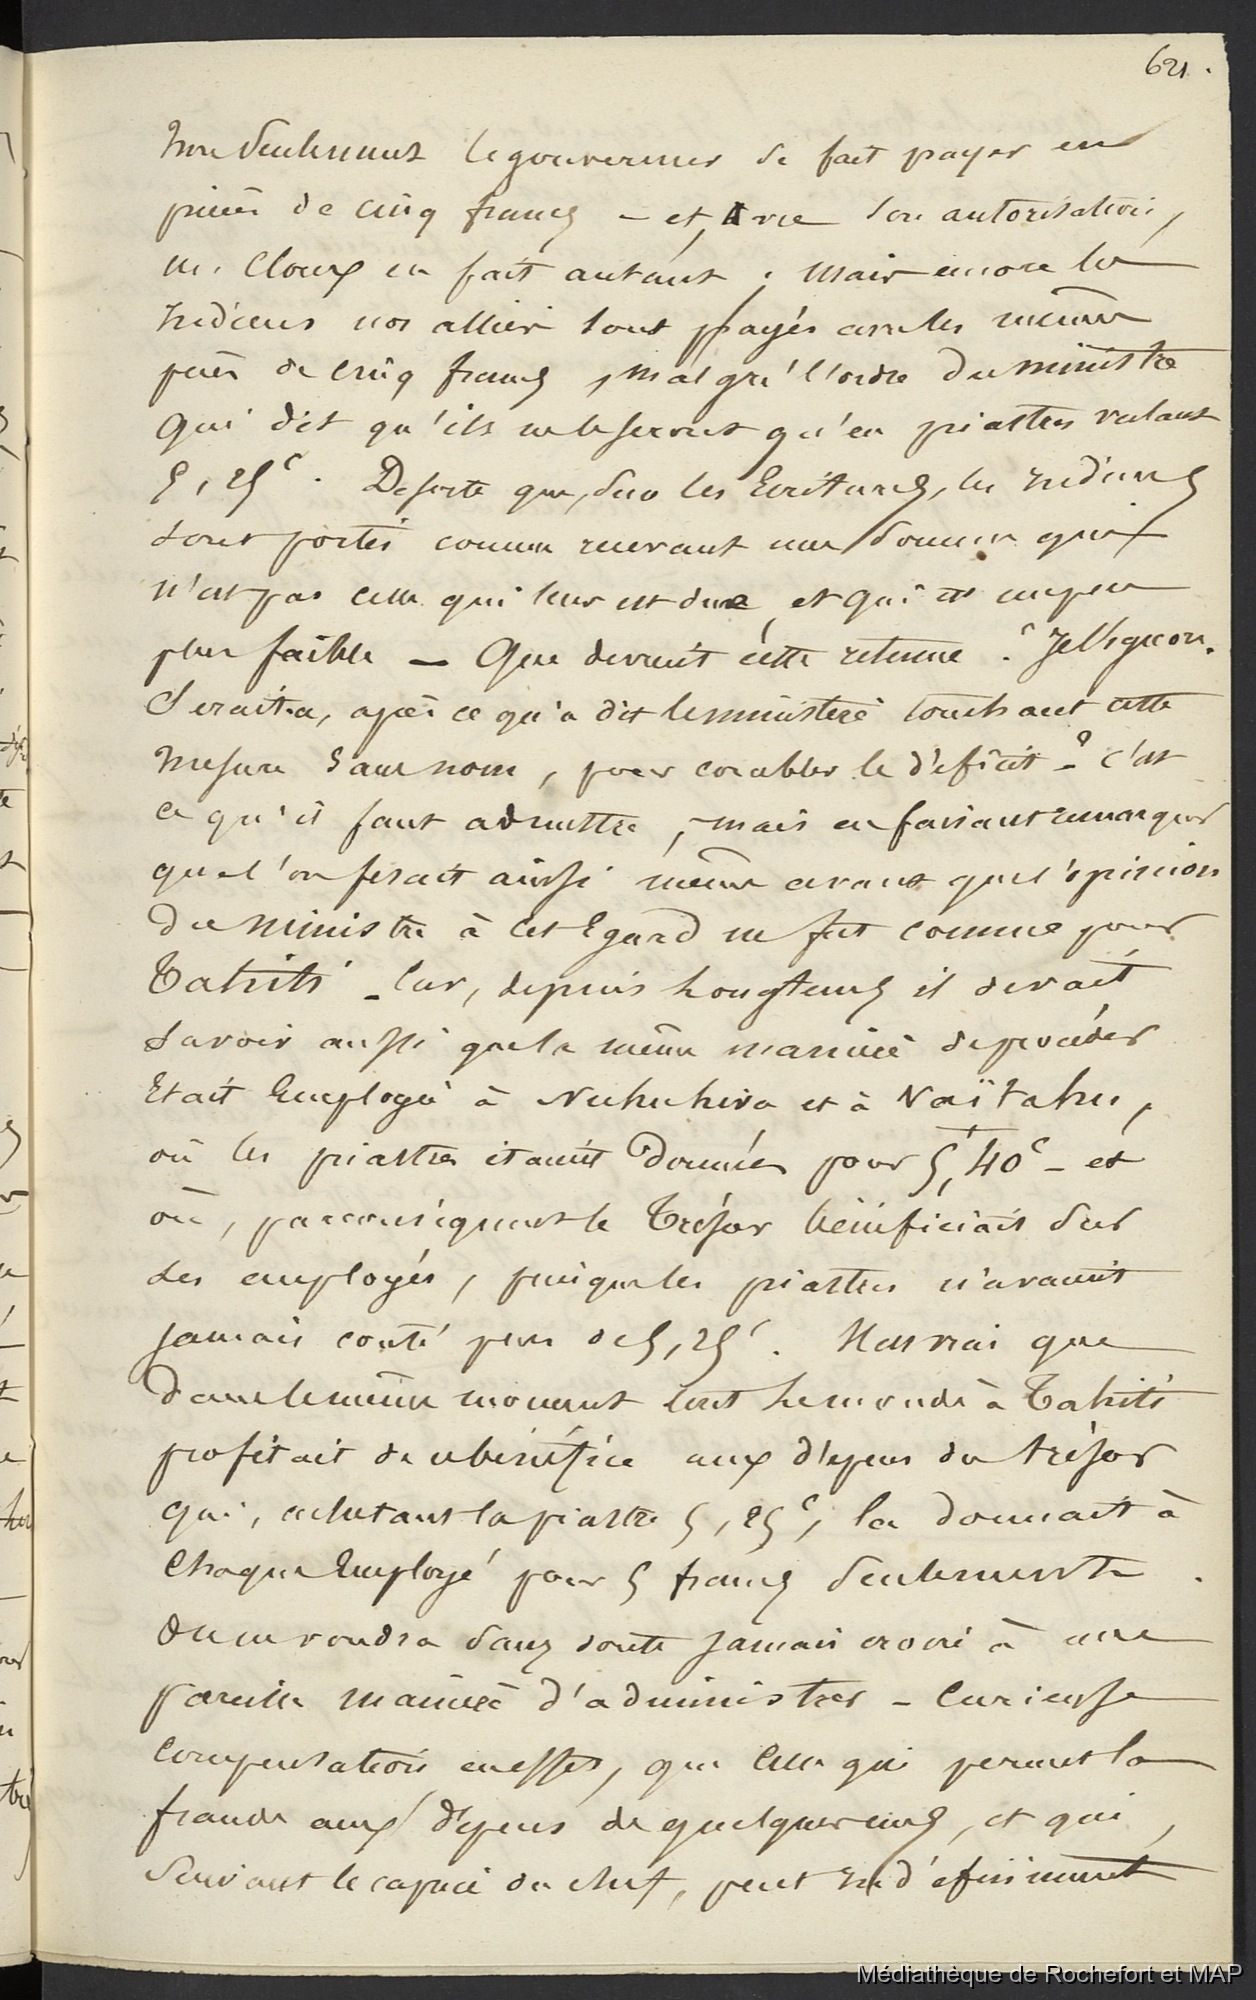 621.
Non seulement le gouverneur se fait payer en
pièces de cinq francs – et, avec son autorisation,
m. Cloux en fait autant ; mais encore les
Indiens nos alliés sont payés avec les mêmes
pièces de cinq francs, malgré l'ordre du ministre
qui dit qu'ils ne le seront qu'en piastres valant
5,25c. De sorte que, sur les Ecritures, les Indiens
sont portés comme recevant une somme qui
n'est pas celle qui leur est due, et qui est un peu
plus faible – Que devient cette retenue ?
Serait-ce, après ce qu'a dit le ministère touchant cette
mesure sans nom, pour combler le déficit ? – c'est
ce qu'il faut admettre, mais en faisant remarquer
que l'on ferait aussi même avant que l'opinion
du ministre à cet Egard ne fut connue pour
Tahiti – Car, depuis Longtemps il devait
savoir aussi que la même manière de procéder
Etait Employée à Nuhuhiva et à Vaïtahu,
où les piastres étaient données pour 5f,40c – et
où, par conséquent le Trésor bénéficiait sur
ses employés, puisque les piastres n'avaient
jamais couté plus de 5,25c. Il est vrai que
dans le même moment tout le monde à Tahiti
profitait de ce bénéfice aux dépens du trésor
qui, achetant la piastre 5,25c, la donnait à
Chaque Employé pour 5 francs seulement.
On ne voudra sans doute jamais croire à une
pareille manière d'administrer – Curieuse
Compensation en effet, que Celle qui permet la
fraude aux dépens de quelques uns, et qui,
suivant le caprice du chef, peut indéfiniment
Médiathèque de Rochefort et MAP